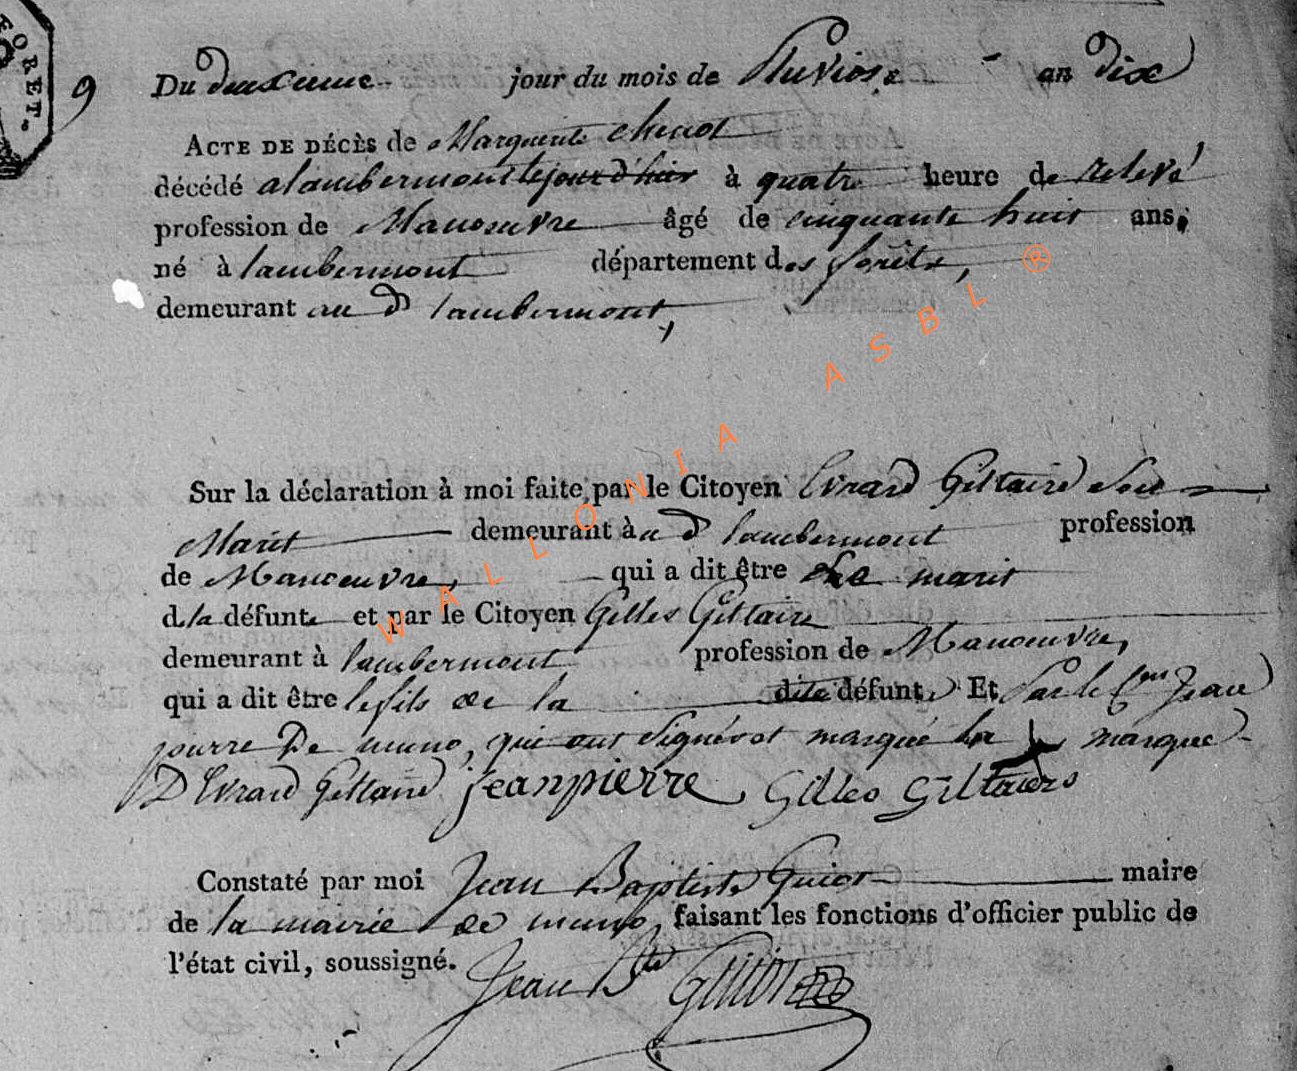 FORET.
9 Du deuxieme jour du mois de Pluviose an dix
ACTE DE DÉCÈS de Marguerite chenot
décédé a lambermont le jour d'hier à quatre heure de relevé
profession de Manoeuvre âgé de cinquante huit ans,
né à lambermont département des forêts,
demeurant au d lambermont,
Sur la déclaration à moi faite par le Citoyen Evrard Giltaire Son
Marit demeurant à au d lambermont profession
de Manoeuvre, qui a dit être le marit
d la défunte et par le Citoyen Gilles Giltaire
demeurant à lambermont profession de Manoeuvre,
qui a dit être le fils de la dite défunte Et Par le Cen Jean
pierre De muno, qui ont Signé et marqué la marque
D Evrard Giltaire jeanpierre Gilles Giltaire
Constaté par moi Jean Baptiste Guiot maire
de la mairie de muno, faisant les fonctions d'officier public de
l'état civil, soussigné. Jean Bte Guiot
WALLONIA ASBL ®